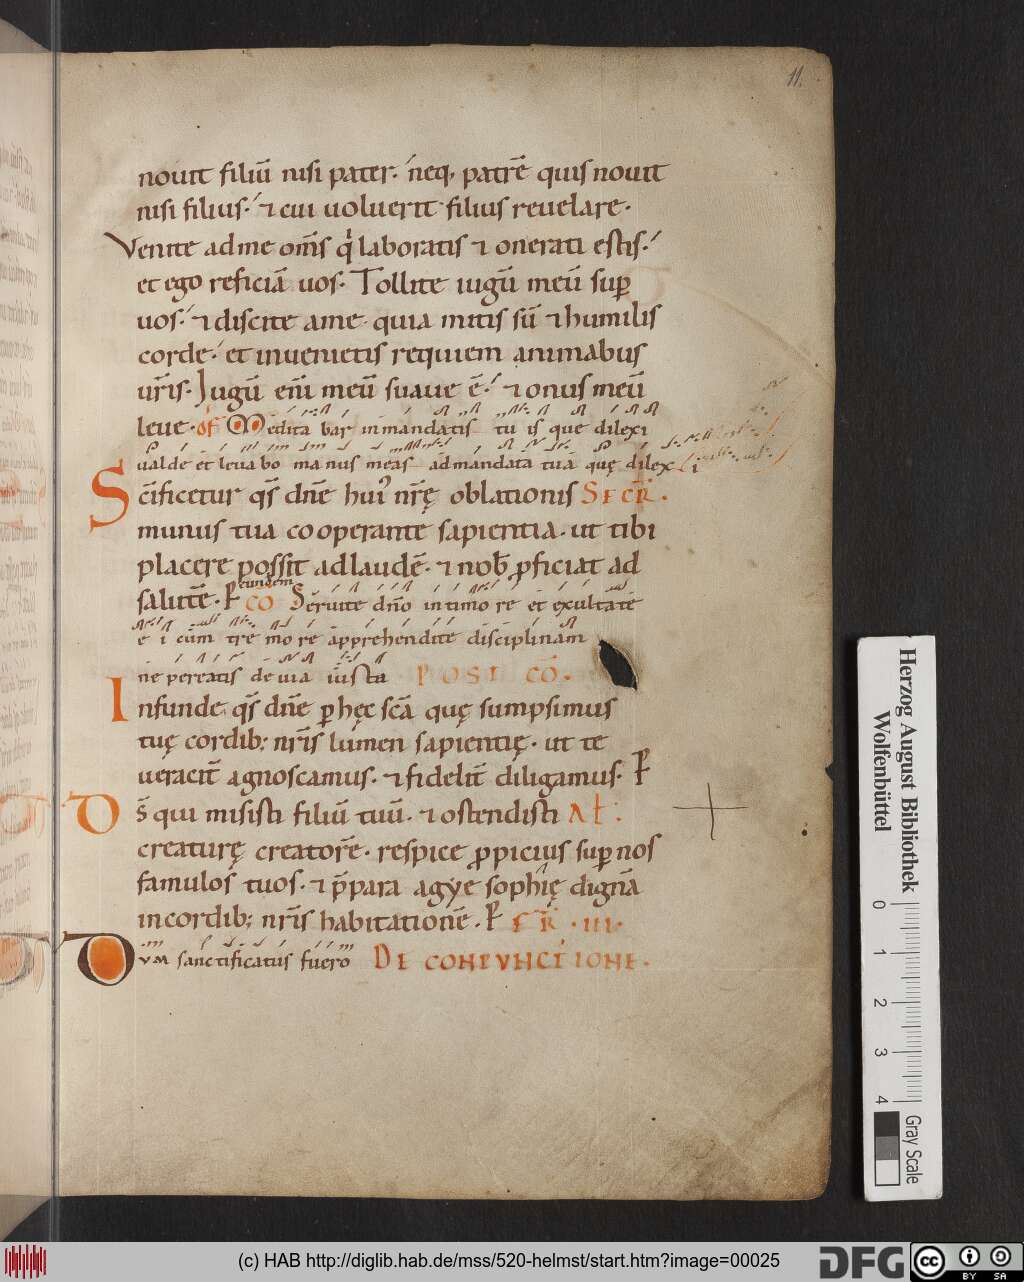 11.
nouit filiū nisi pater. neq; patrē quis nouit
nisi filius. ⁊ cui uoluerit filius reuelare.
Venite ad me om̄s q̓ laboratis ⁊ onerati estis.
et ego reficiā uos. Tollite iugū meū sup̲
uos. ⁊ discite a me quia mitis sū ⁊ humilis
corde. et inuenietis requiem animabus
ur̄is. Iugū eni̅ meū suaue ē. ⁊ onus meū
leue. of Meditabar in mandatis tuis que dilexi
ualde et leuabo manus meas ad mandata tua quę dilexi
Sc̄ificetur qs̄ dn̄e hui᾽ nr̄ę oblationis SECR̄.
munus tua cooperante sapientia. ut tibi
placere possit ad laudē. ⁊ nob̄ p̲ficiat ad
salutē. P̲ eundem CO Seruite dn̄o in timore et exultate
ei cum tremore apprehendite disciplinam
ne pereatis de uia iusta POST CŌ.
Infunde qs̄ dn̄e p̲ hęc sc̄a quę sumpsimus
tuę cordib; nr̄is lumen sapientię. ut te
ueracit̄ agnoscamus. ⁊ fidelit̄ diligamus. P̲
D̄s qui misisti filiū tuū. ⁊ ostendisti AL̄.
creaturę creatorē. respice p̲picius sup̲ nos
famulos tuos. ⁊ p̄para agye sophię dignā
in cordib; nr̄is habitationē. P̲ FR̄. III.
Dum sanctificatus fuero DE CONIVNCTIONE.
Herzog August Bibliothek
Wolfenbüttel
0 1 2 3 4
Gray Scale
(c) HAB http://diglib.hab.de/mss/520-helmst/start.htm?image=00025
DFG
cc BY SA